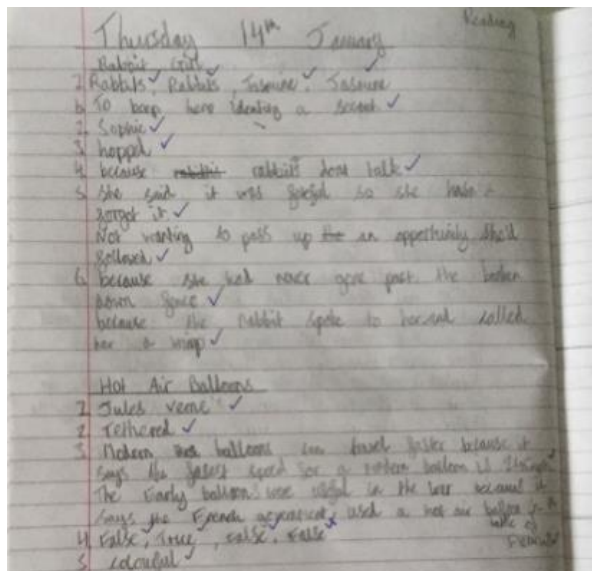 Reading
Thursday 14th January
Rabbit Girl
1 Rabbits, Rabbits, Jasmine, Jasmine
b To keep hero identity a secret
2 Sophie
3 hopped
4 because rabbits dont talk
5 She said it was so she
forgot it
Not wanting to pass up an oppertunity she'd
followed
6 because she had never gone past the broken
down fence
because the rabbit spoke to her and called
her a wimp
Hot Air Balloons
1 Jules verne
2 Tethered
3 Modern balloons can travel faster because it
says the fastest speed for a modern balloon is
The Early balloons were useful in the war because it
says the French used a hot air balloon
4 False, True, False, False
5 colourful